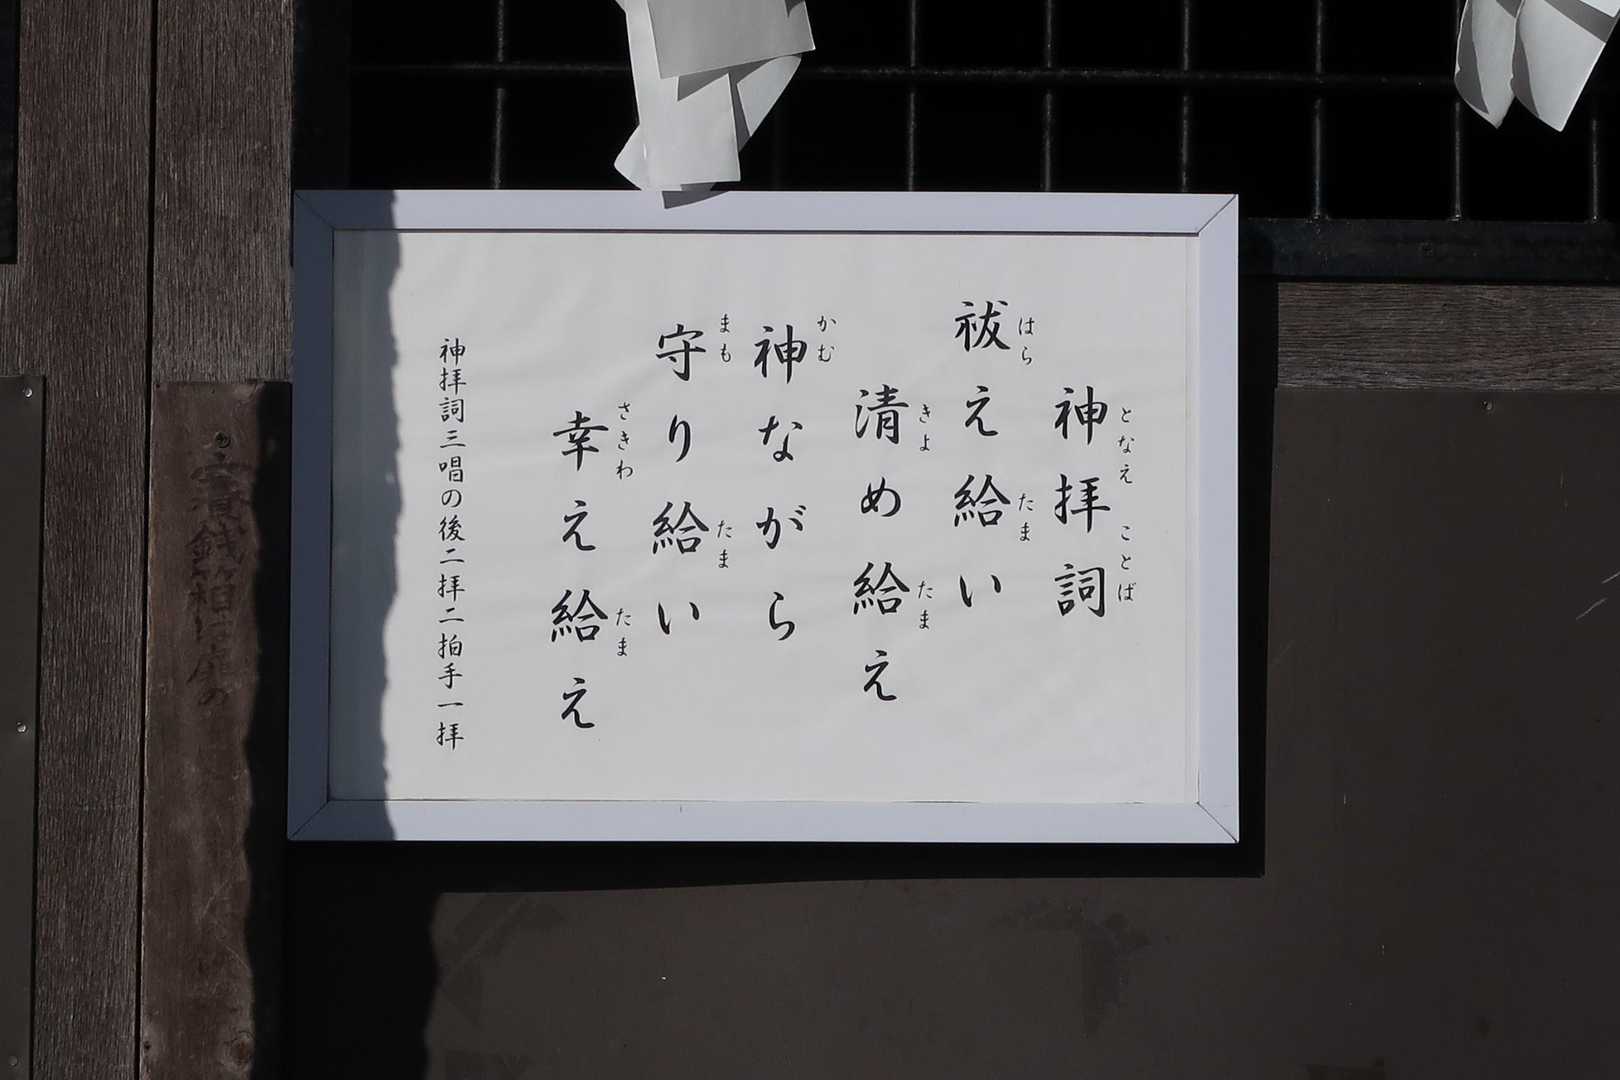 神拝詞
となえ ことば
祓え給い
はら たま
清め給え
きよ たま
神ながら
かむ
守り給い
まも たま
幸え給え
さきわ たま
神拝詞三唱の後二拝二拍手一拝